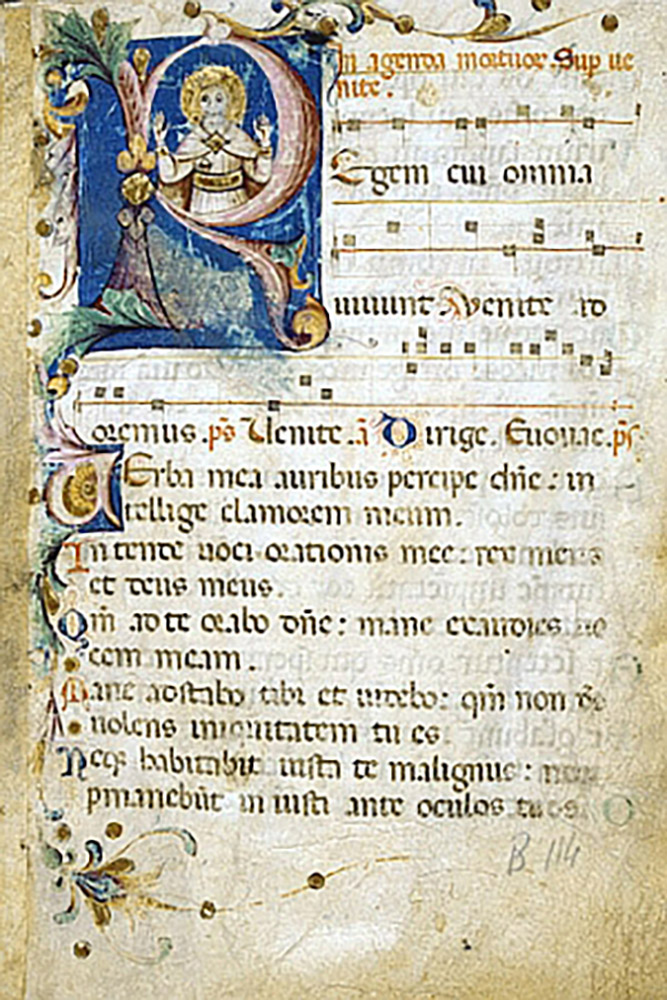 In agenda mortuor Sup ue
nite.
REgem cui omnia
uiuunt Venite ad
oremus. ps Uenite. a Dirige. Euouae. ps
UErba mea auribus percipe dñe: in
tellige clamorem meum.
Intende uoci orationis mee: rex meus
et deus meus.
Qm̃ ad te orabo dñe: mane exaudies uo
cem meam.
Mane adstabo tibi et uidebo: qm̃ non de
uolens iniquitatem tu es.
Neqʒ habitabit iuxta te malignus: neqʒ
pmanebũt iniusti ante oculos tuos.
B 114